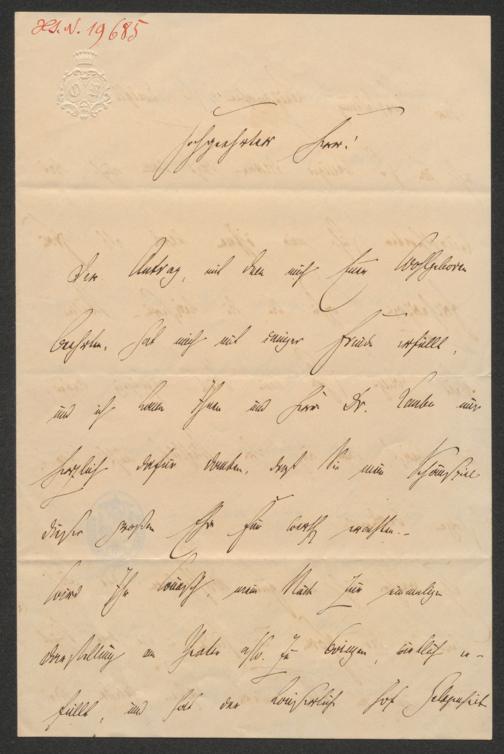 H.I.N. 19685
Hochgeehrter Herr!
Der Antrag, mit dem mich Euer Wohlgeboren
beehrten, hat mich mit inniger Freude erfüllt,
und ich kann Ihnen und Herr Dr. Laube nur
herzlich dafür danken, daß Sie mein Schauspiel
dieser großen Ehre für werth erachten. –
Wird Ihr Wunsch, mein Stück zur einmaligen
Darstellung am Theater zu bringen, wirklich er-
füllt, und hat der kaiserliche Hof Gelegenheit